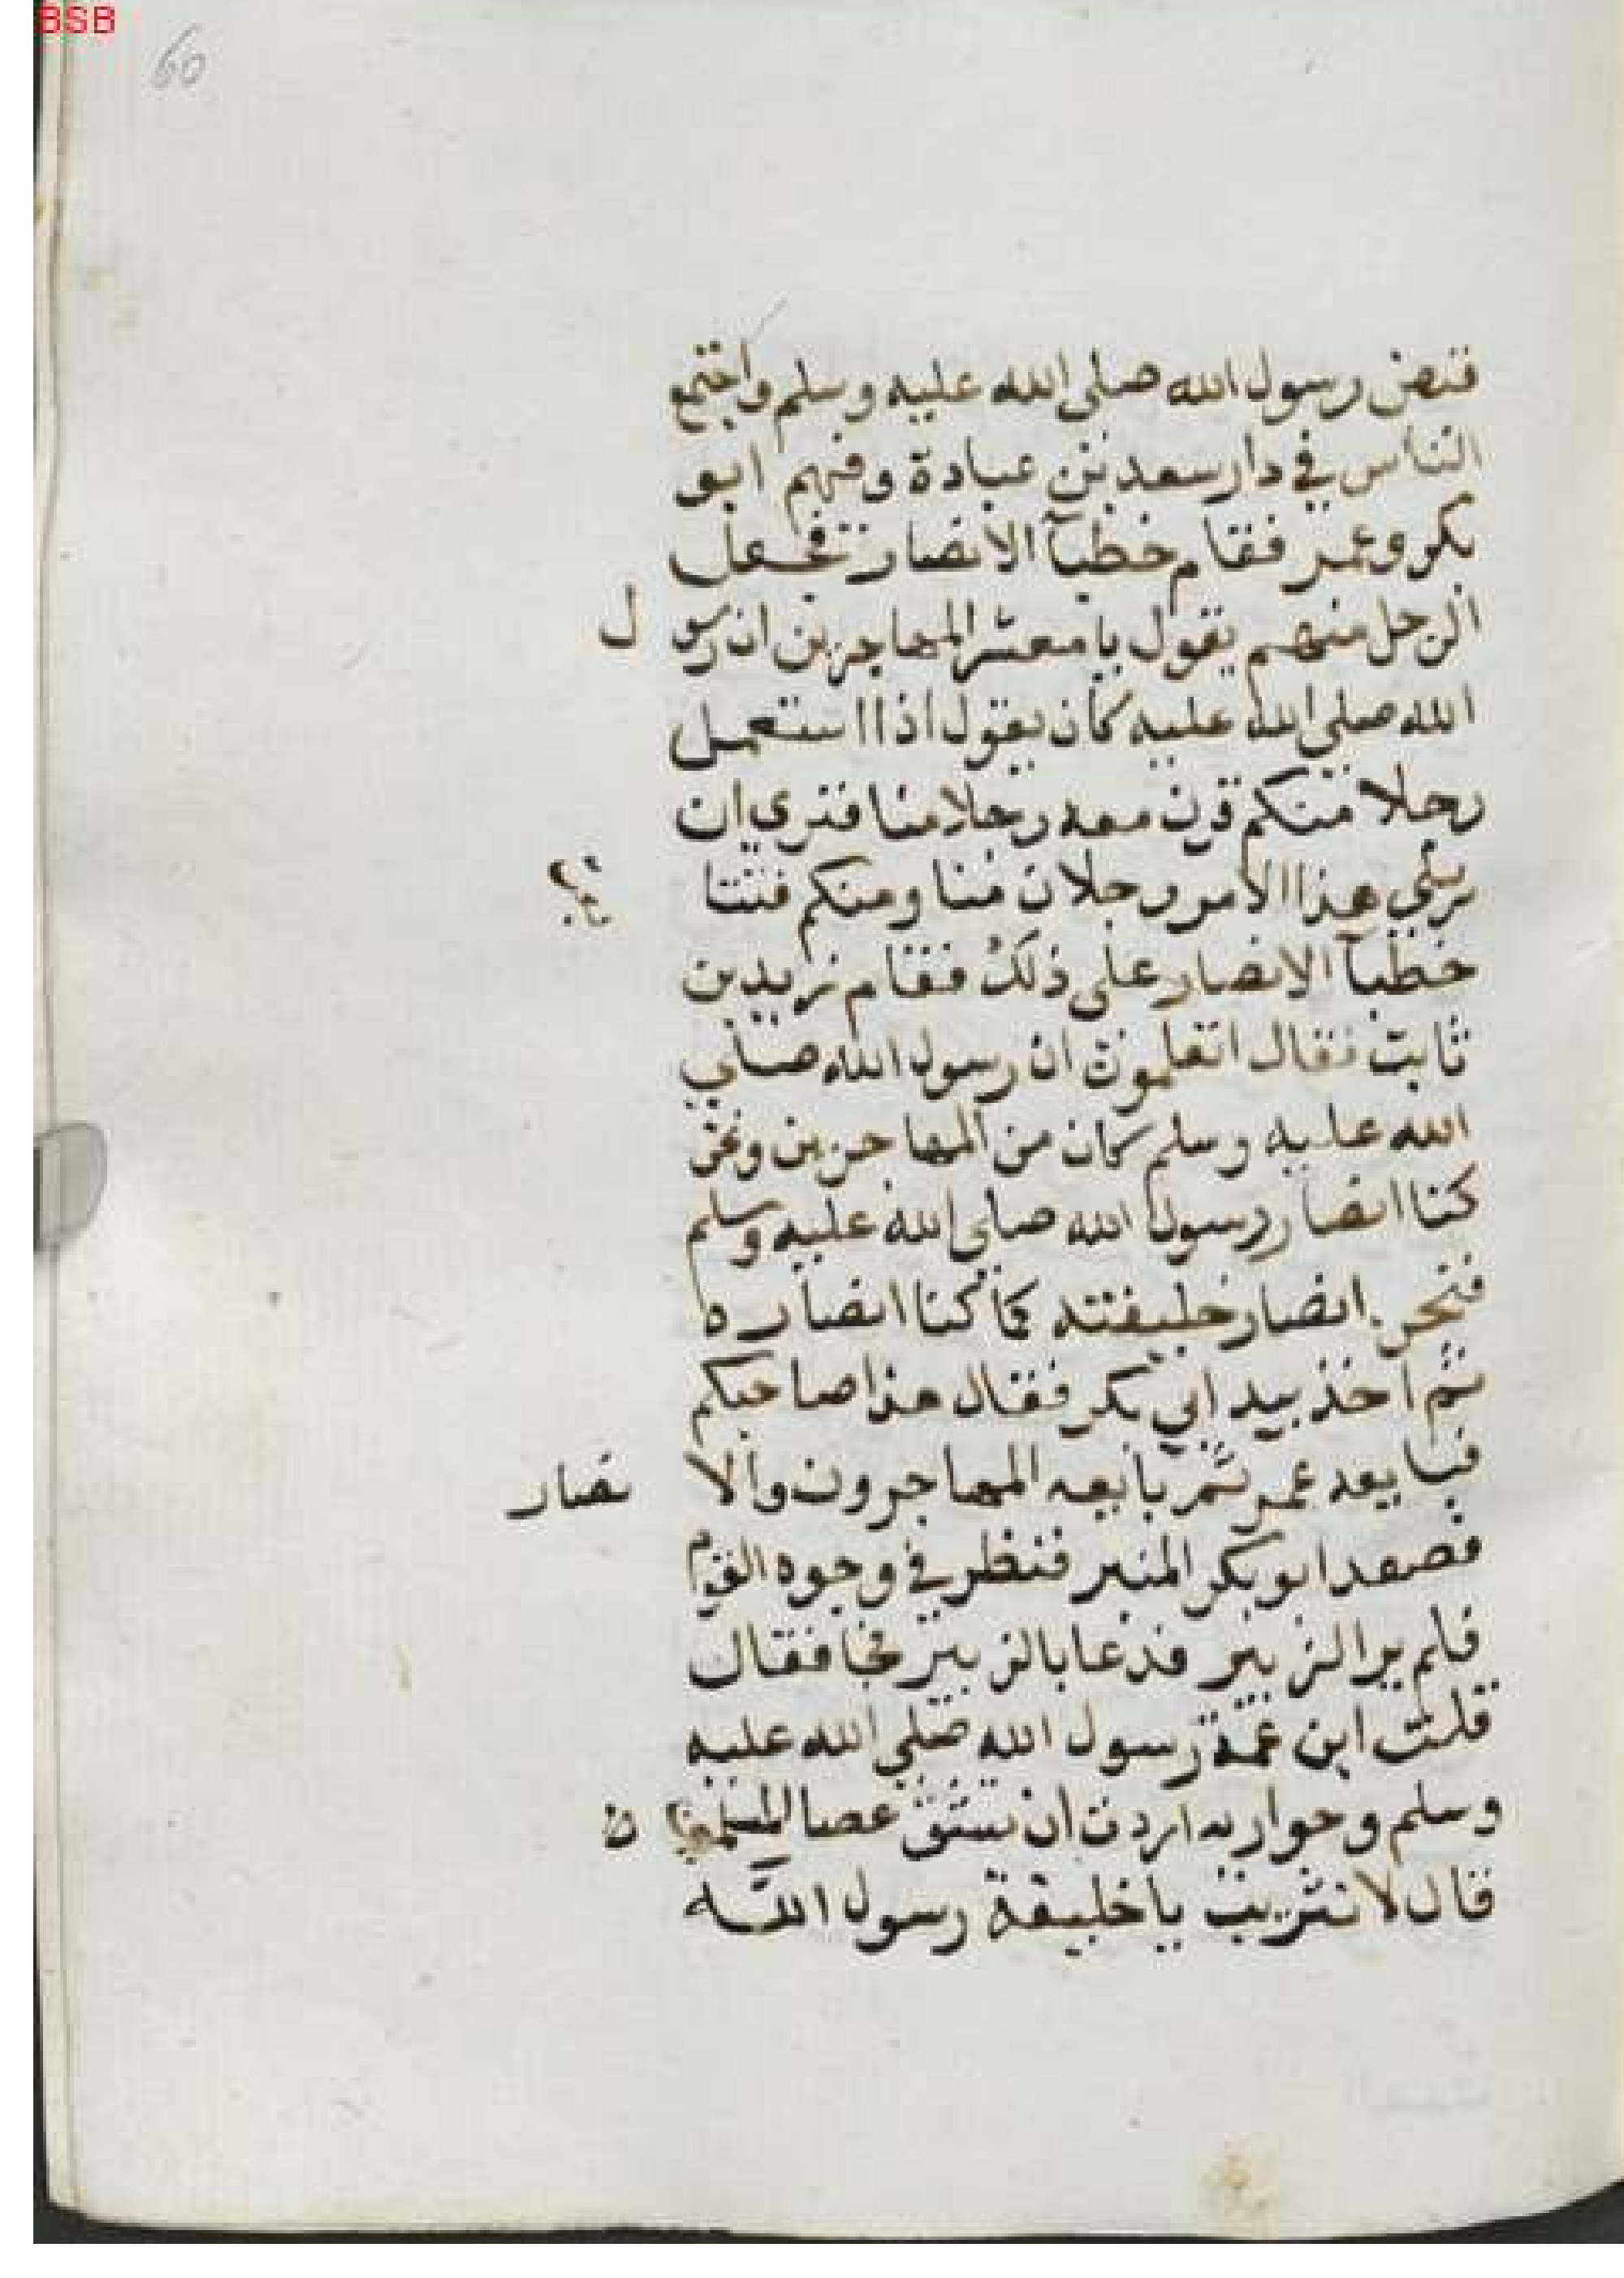 BSB
60
فقبض رسول الله صلى الله عليه وسلم واجتمع
الناس في دار سعد بن عبادة وفيهم ابو
بكر وعمر فقام خطبآ الانصار فجعل
الرجل منهم يقول يا معشر المهاجرين ان رسو ل
الله صلى الله عليه كان يقول اذا استعمل
رجلا منكم قرن معه رجلا منا فنري ان
يلي هذا الامر رجلان منا ومنكم فتتا بع
خطبآ الانصار على ذلك فقام زيد بن
ثابت فقال اتعلمون ان رسول الله صلي
الله عليه وسلم كان من المهاجرين ونحن
كنا انصار رسول الله صلى الله عليه وسلم
فنحن انصار خليفته كما كنا انصاره
ثم اخذ بيد ابي بكر فقال هذا صاحبكم
فبايعه عمر ثم بايعه المهاجرون والا نصار
فصعد ابو بكر المنبر فنظر في وجوه القوم
فلم ير الزبير فدعا بالزبير فجا فقال
قلت ابن عمة رسول الله صلي الله عليه
وسلم وحواريه اردت ان تشق عصا المسلمين
قال لا تثريب يا خليفة رسول الله